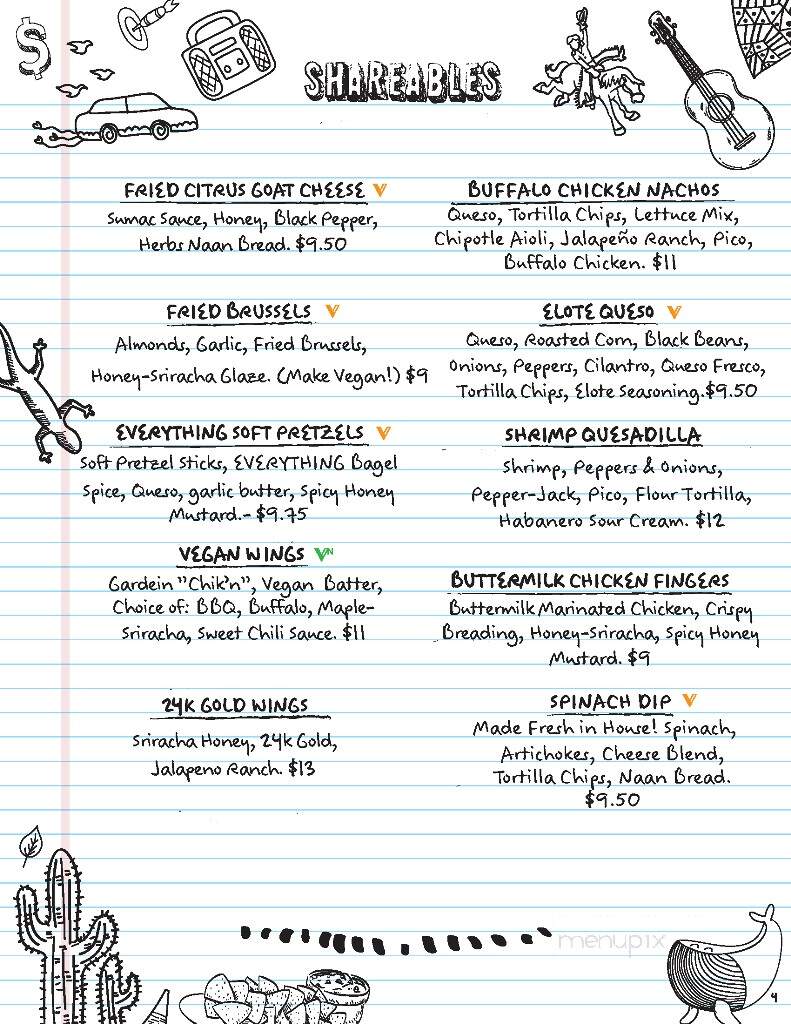 SHAREABLES
FRIED CITRUS GOAT CHEESE V
Sumac Sauce, Honey, Black Pepper,
Herbs Naan Bread. $9.50
FRIED BRUSSELS V
Almonds, Garlic, Fried Brussels,
Honey-Sriracha Glaze. (Make Vegan!) $9
EVERYTHING SOFT PRETZELS V
Soft Pretzel Sticks, EVERYTHING Bagel
Spice, Queso, garlic butter, Spicy Honey
Mustard.- $9.75
VEGAN WINGS VN
Gardein "Chik'n", Vegan Batter,
Choice of: BBQ, Buffalo, Maple-
Sriracha, Sweet Chili Sauce. $11
24K GOLD WINGS
Sriracha Honey, 24k Gold,
Jalapeno Ranch. $13
BUFFALO CHICKEN NACHOS
Queso, Tortilla Chips, Lettuce Mix,
Chipotle Aioli, Jalapeño Ranch, Pico,
Buffalo Chicken. $11
ELOTE QUESO V
Queso, Roasted Corn, Black Beans,
Onions, Peppers, Cilantro, Queso Fresco,
Tortilla Chips, Elote Seasoning.$9.50
SHRIMP QUESADILLA
Shrimp, Peppers & Onions,
Pepper-Jack, Pico, Flour Tortilla,
Habanero Sour Cream. $12
BUTTERMILK CHICKEN FINGERS
Buttermilk Marinated Chicken, Crispy
Breading, Honey-Sriracha, Spicy Honey
Mustard. $9
SPINACH DIP V
Made Fresh in House! Spinach,
Artichokes, Cheese Blend,
Tortilla Chips, Naan Bread.
$9.50
menupix
4